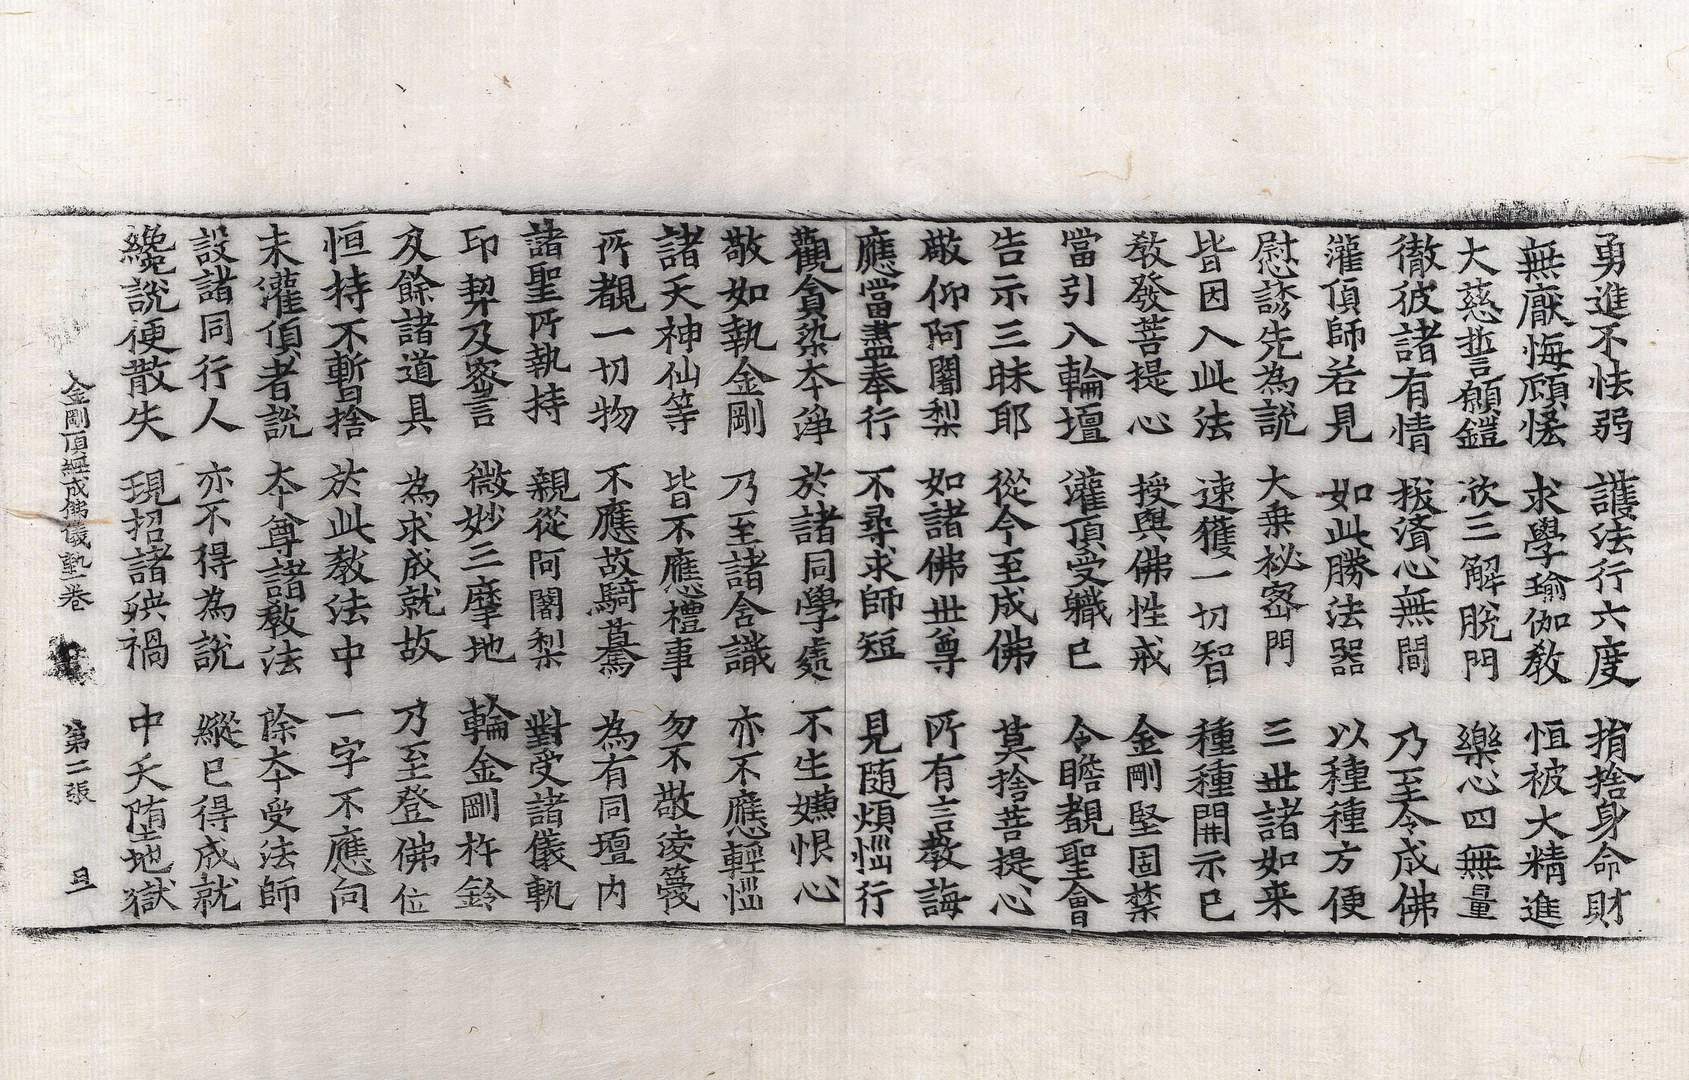 勇進不怯弱 護法行六度 捐捨身命財
無厭悔顧悋 求學瑜伽教 恒被大精進
大慈誓願鎧 欲三解脫門 樂心四無量
徹彼諸有情 拔濟心無間 乃至令成佛
灌頂師若見 如此勝法器 以種種方便
慰誘先為說 大乗秘密門 三世諸如来
皆因入此法 速獲一切智 種種開示已
教發菩提心 授與佛性戒 金剛堅固禁
當引入輪壇 灌頂受軄已 令瞻覩聖會
告示三昧耶 從今至成佛 莫捨菩提心
敬仰阿闍梨 如諸佛世尊 所有言教誨
應當盡奉行 不尋求師短 見随煩惱行
觀貪染夲淨 於諸同學處 不生嫌恨心
敬如執金剛 乃至諸含識 亦不應輕惱
諸天神仙等 皆不應禮事 勿不敬凌篾
所覩一切物 不應故騎驀 為有同壇内
諸聖所執持 親從阿闍梨 對受諸儀軌
印契及密言 微妙三摩地 輪金剛杵鈴
及餘諸道具 為求成就故 乃至登佛位
恒持不暫捨 於此教法中 一字不應向
未灌頂者說 夲尊諸教法 除夲受法師
設諸同行人 亦不得為說 縱已得成就
纔說便散失 現招諸殃禍 中夭堕地獄
金剛頂經成佛儀軌一卷 第二張 旦